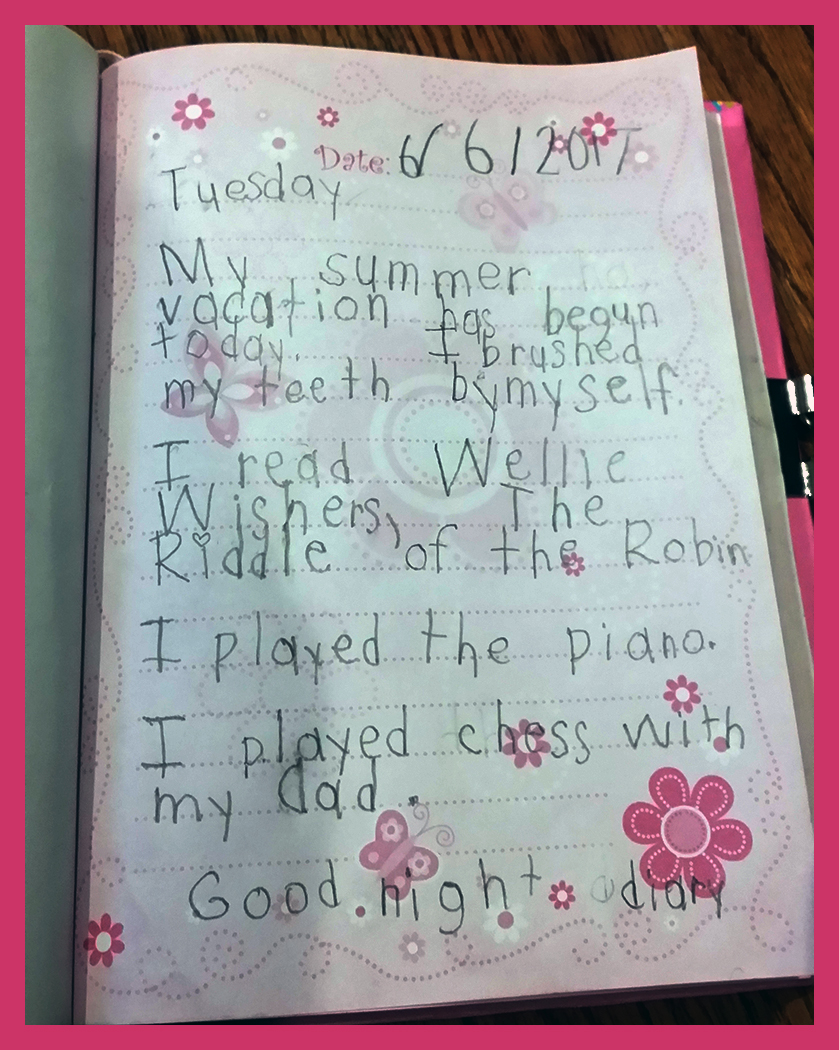 Date: 6/6/2017
Tuesday
My summer
vacation has begun
today. I brushed
my teeth by myself.
I read Wellie
Wishers, The
Riddle of the Robin
I played the piano.
I played chess with
my dad.
Good night diary